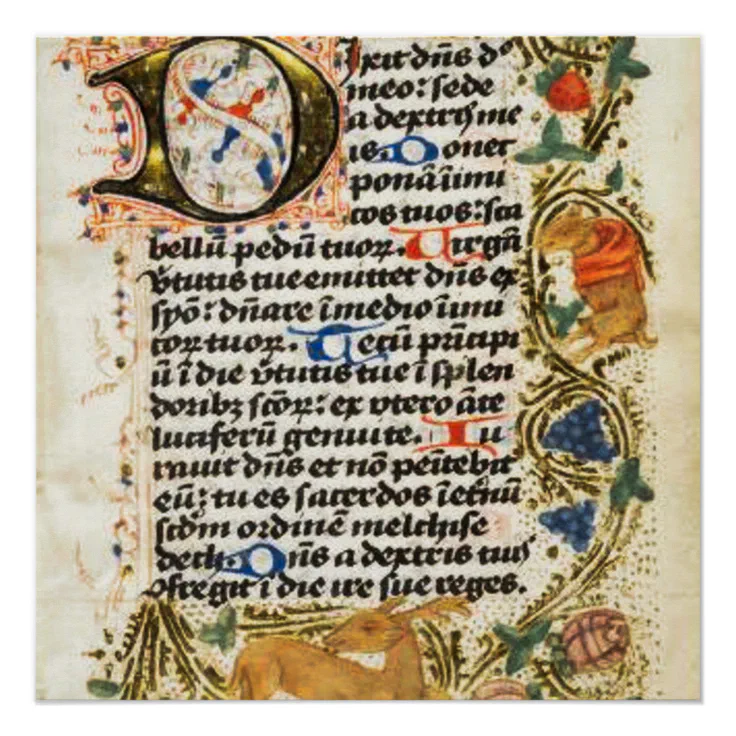 Dixit dn̄s d°
meo: sede
a dextris me
is. Donec
ponā īimi
cos tuos: sca
bellū pedū tuoꝝ. Virgā
v̄tutis tue emittet dn̄s ex
syō: dn̄are ī medio īimi
coꝝ tuoꝝ. Tecū prīcipi
ū ī die v̄tutis tue ī splen
doribꝫ scōꝝ: ex vtero āte
luciferū genui te. Iu
rauit dn̄s et nō penītebit
eū: tu es sacerdos ī etnū
scdm ordinē melchise
dech. Dn̄s a dextris tuis
ꝯfregit ī die ire sue reges.